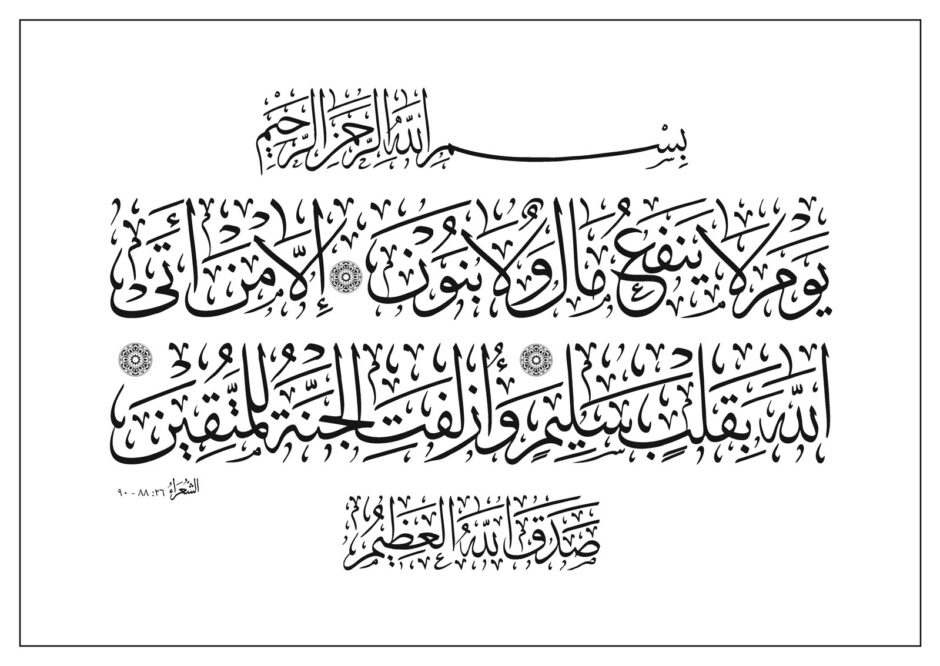 بِسْمِ اللَّهِ الرَّحْمَنِ الرَّحِيمِ
يَوْمَ لَا يَنفَعُ مَالٌ وَلَا بَنُونَ ۝ إِلَّا مَنْ أَتَى
اللَّهَ بِقَلْبٍ سَلِيمٍ ۝ وَأُزْلِفَتِ الْجَنَّةُ لِلْمُتَّقِينَ ۝
الشُّعَرَاءُ ٢٦: ٨٨ - ٩٠
صَدَقَ اللَّهُ الْعَظِيمُ